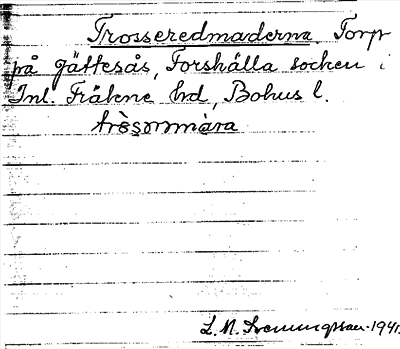 Trosseredmaderna, Torp
på Jättesås, Forshälla socken i
Inl. Fräkne hd, Bohus l.
trèsommàra
L. N. Svenungsson. 1941.